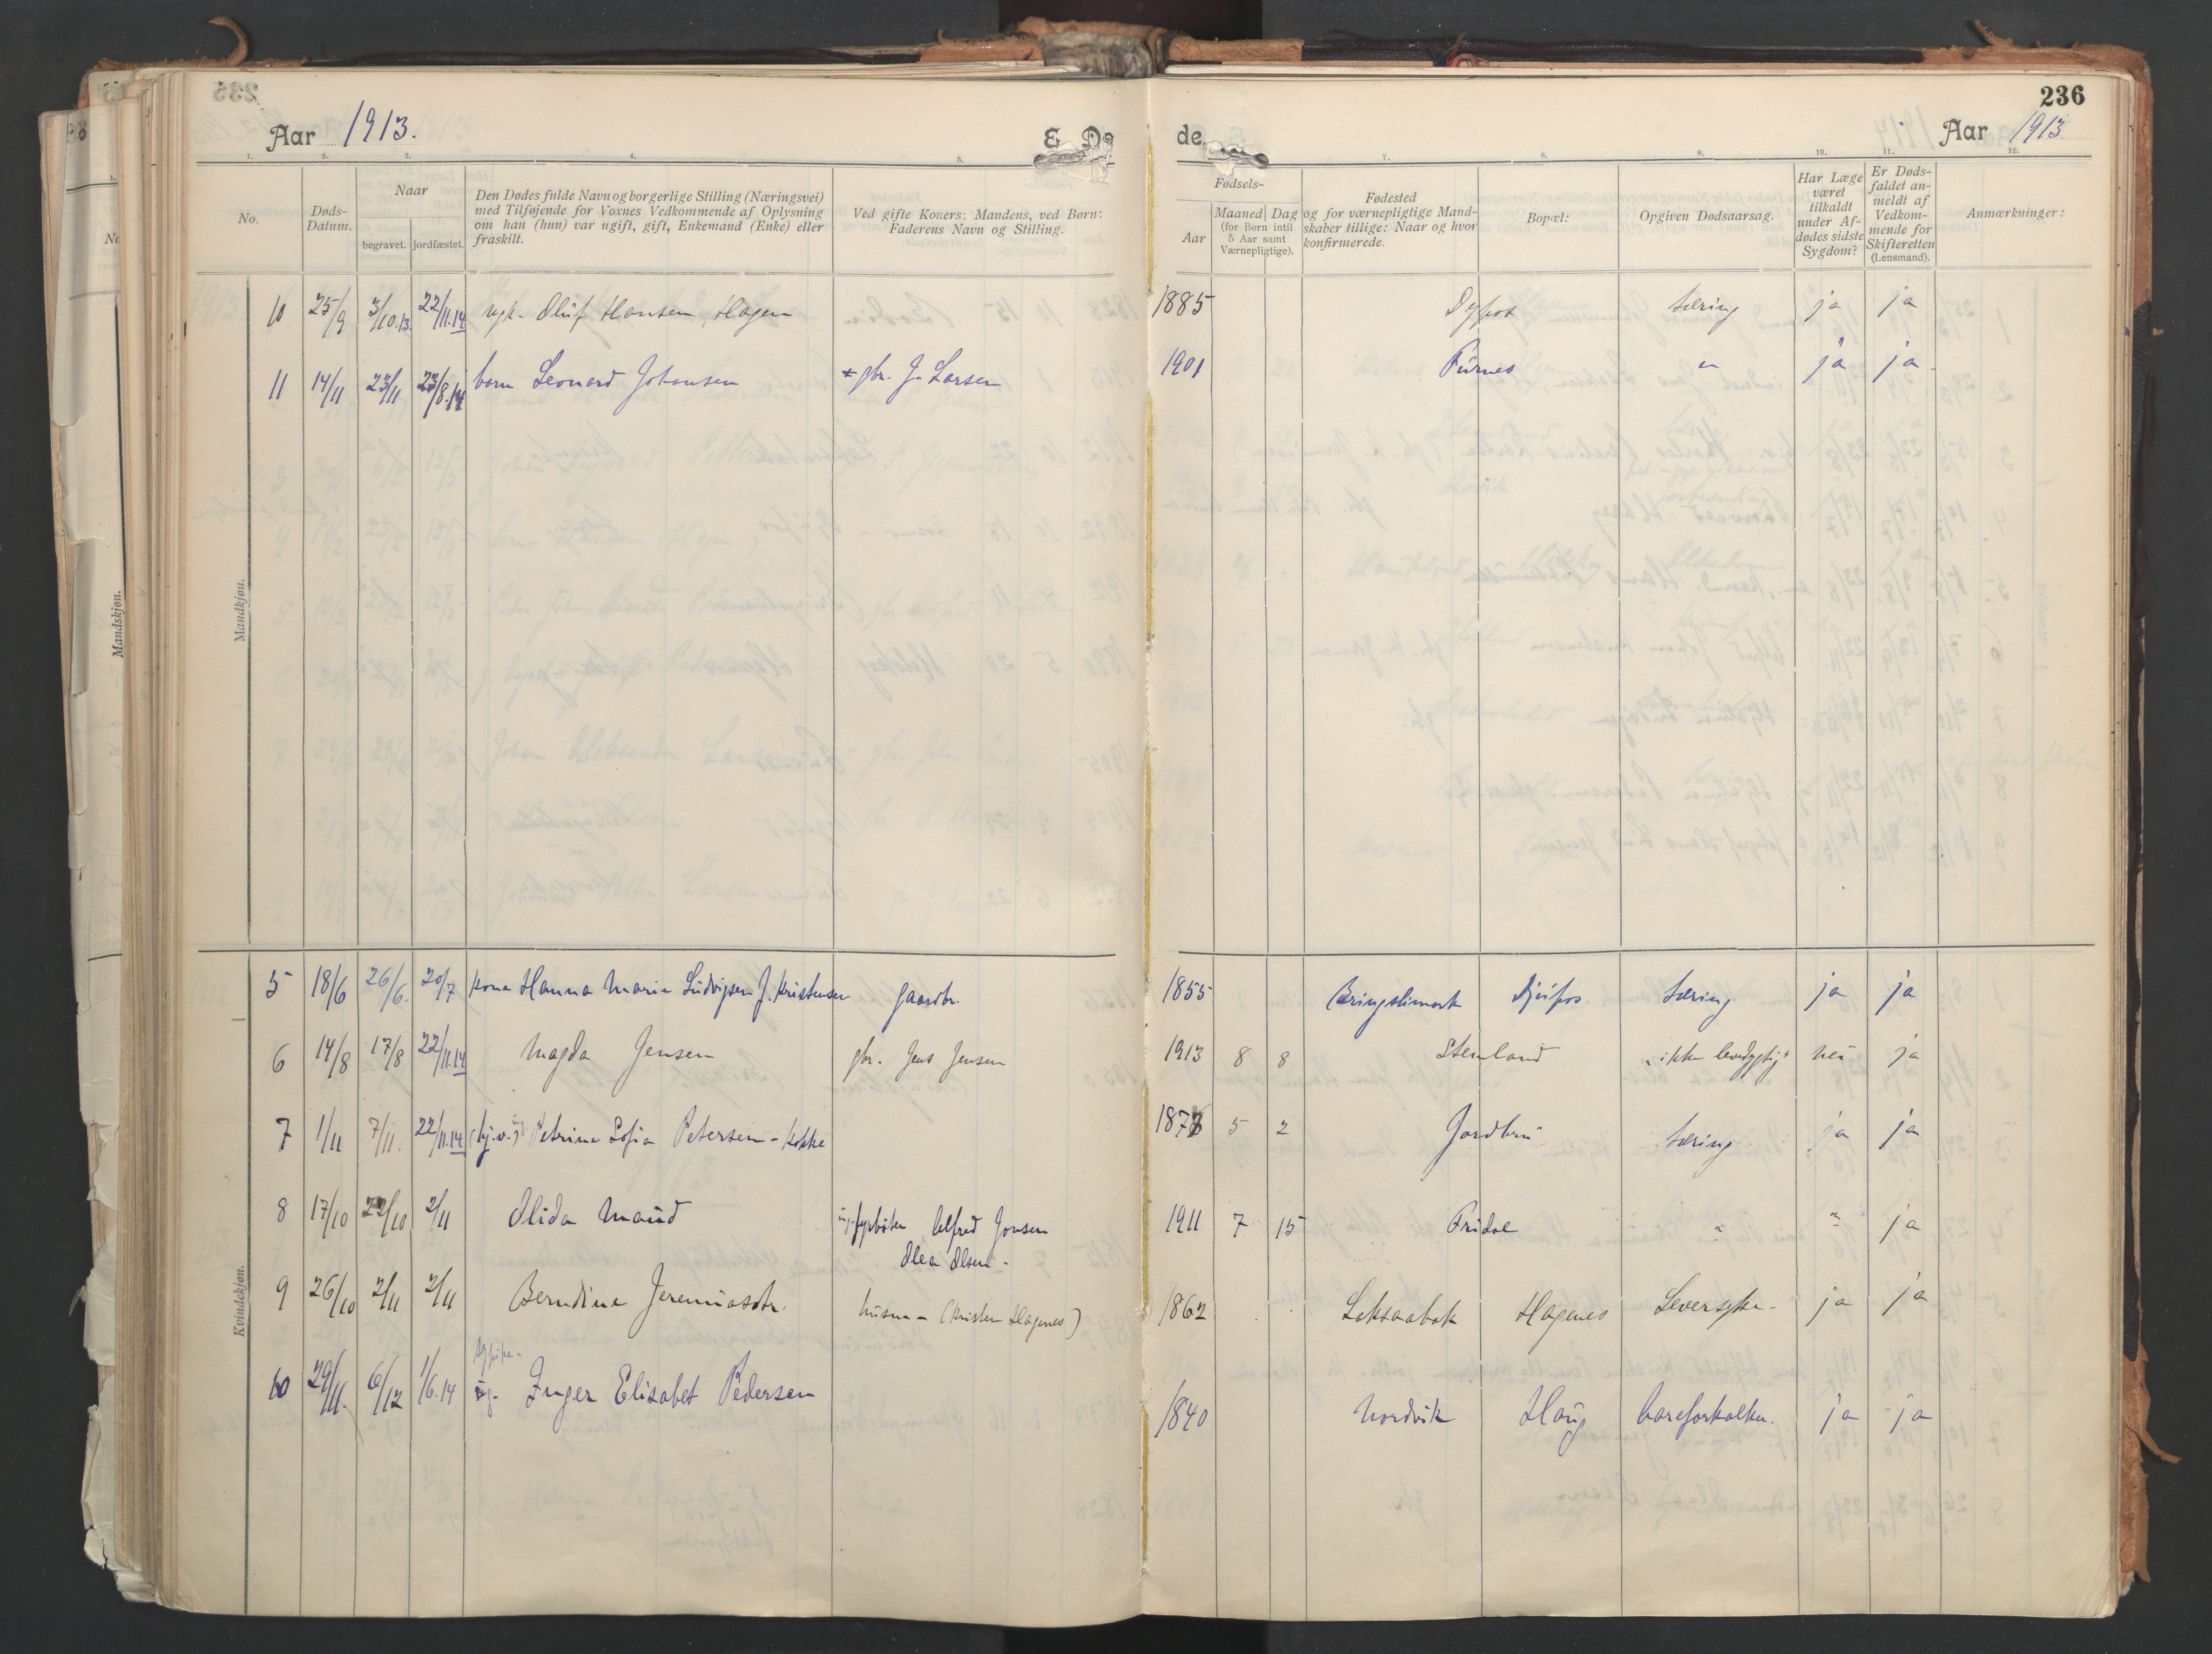 236
Aar 1913.
E. Dø
de
Aar 1913.
1. 2. 3. 4. 5. 7. 8. 9. 10. 11. 12.
No.
Døds-
Datum.
Naar
begravet. jordfæstet.
Den Dødes fulde Navn og borgerlige Stilling (Næringsvei)
med Tilføiende for Voxnes Vedkommende af Oplysning
om han (hun) var ugift, gift, Enkemand (Enke) eller
fraskilt.
Ved gifte Koners: Mandens, ved Børn:
Faderens Navn og Stilling.
Fødsels-
Aar
Maaned
(for Børn intil
5 Aar samt
Værnepligtige).
Dag
Fødested
og for værnepligtige Mand-
skaber tillige: Naar og hvor
konfirmerede.
Bopæl:
Opgiven Dødsaarsag.
Har Læge
været
tilkaldt
under Af-
dødes sidste
Sygdom?
Er Døds-
faldet an-
meldt af
Vedkom-
mende for
Skifteretten
(Lensmand).
Anmærkninger:
Mandskjøn.
Mandkjøn.
10 25/9 3/10.13 22/11.14 ugk. Oluf Hansen, Hagen 1885 Dypfos tæring ja ja
11 14/11 23/11 23/8.14 barn Leonard Johansen gbr. J. Larsen 1901 Furnes " ja ja
Kvindekjøn.
5 18/6 26/6. 20/7 kona Hanna Maria Ludvigsen J. Kristensen gaardbr. 1855 Bringslimark Djupfos tæring ja ja
6 14/8 17/8 22/11.14 Magda Jensen gbr. Jens Jensen 1913 8 8 Stenland "ikke levedygtig" nei ja
7 1/11 7/11. 22/11.14 Petrine Sofia Petersen - Kokke 5 2 Jordbru tæring ja ja
8 17/10 22/10 2/11 Olida Maud ug. fyrbøter Alfred Jonsen 1911 7 15 " " ja
Olea Olsen -
9 26/10 2/11 2/11 Berndine Jeremiasdtr. husm - (Kristen Hagenes) 1862 Loksaabak Hagenes Leversyke - ja ja
10 29/11. 6/12 1/6.14 ug. Inger Elisabet Pedersen 1840 Nordvik Haug aareforkalkn. ja ja